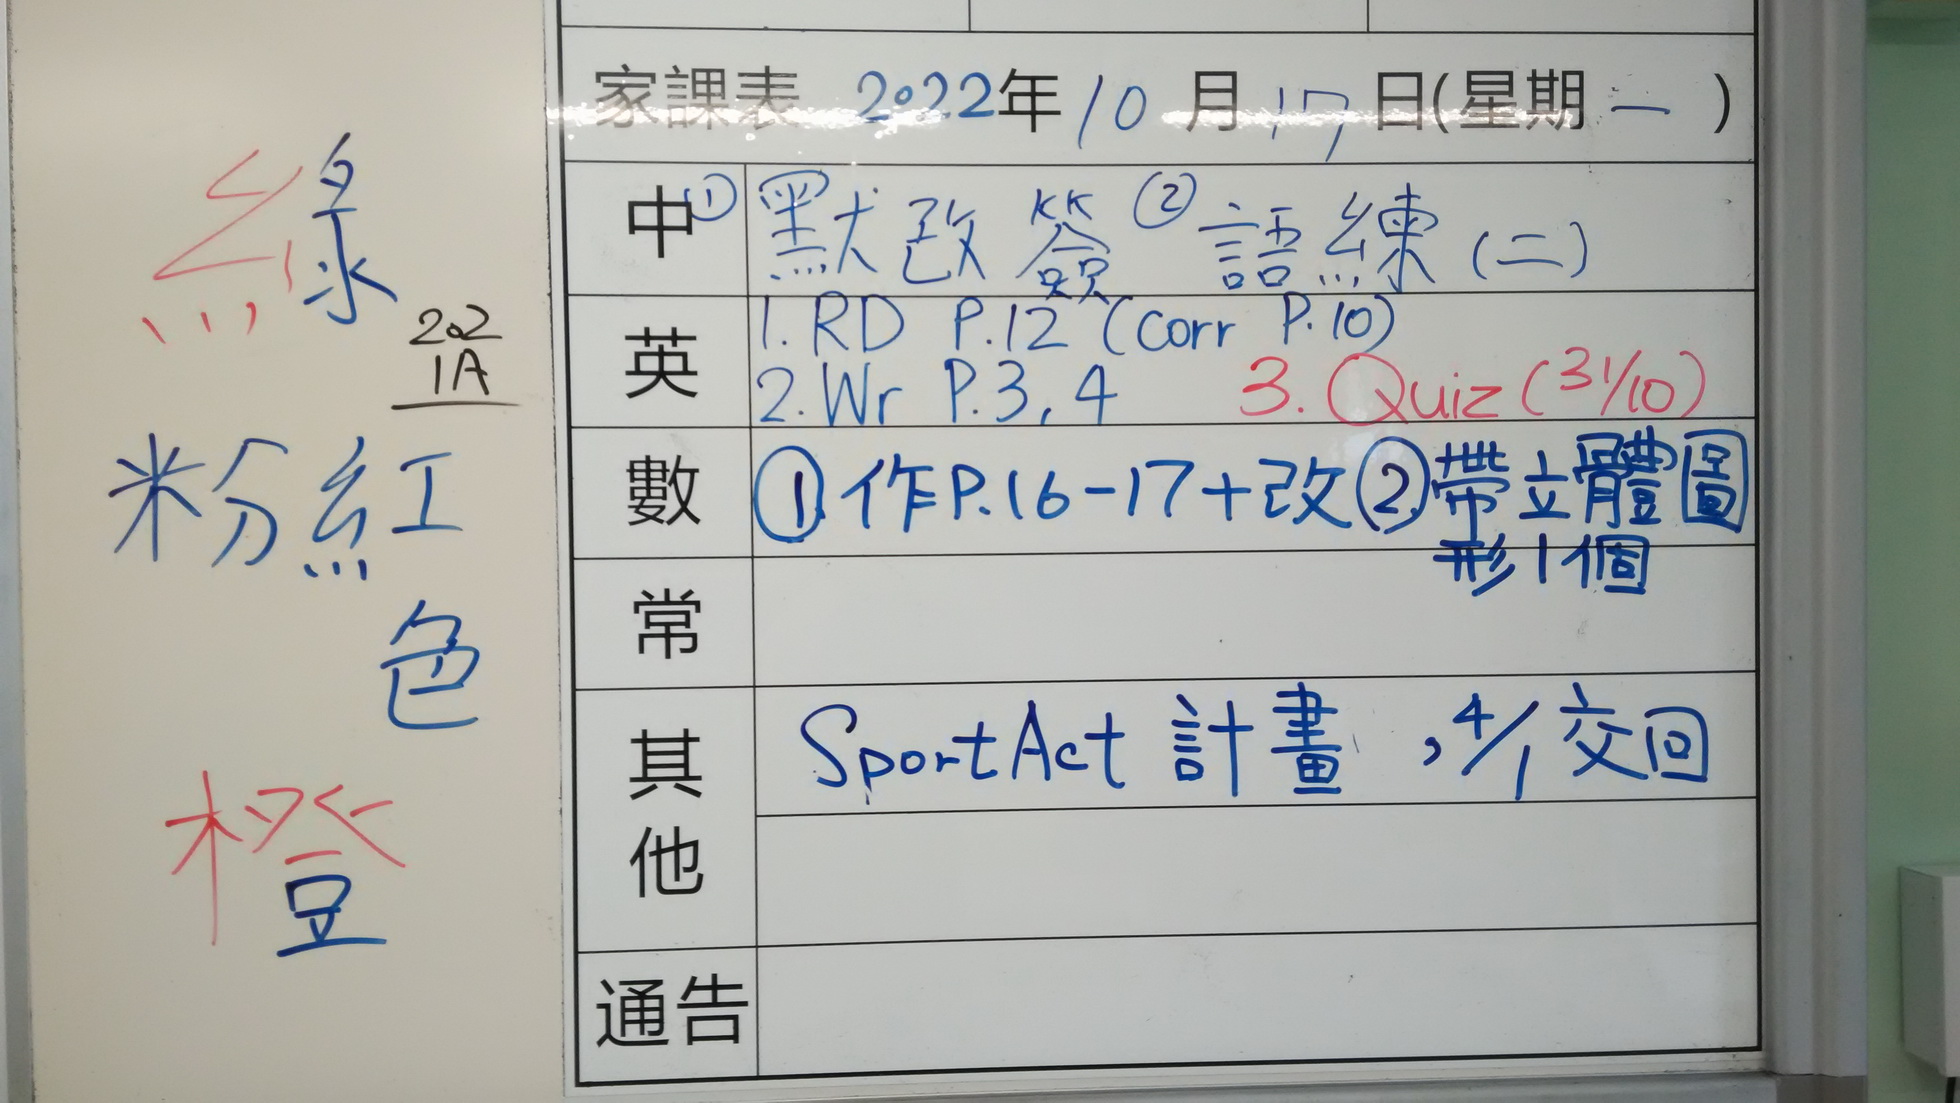 家課表 2022年10月17日(星期一)
中 ①默改簽 ②語練(二)
英 1. RD P.12 (corr P.10)
2. Wr P.3, 4 3. Quiz (31/10)
數 ①作P.16-17+改②帶立體圖
形1個
常
其他 Sport Act 計畫，4/1交回
通告
綠
202
1A
粉紅
色
橙